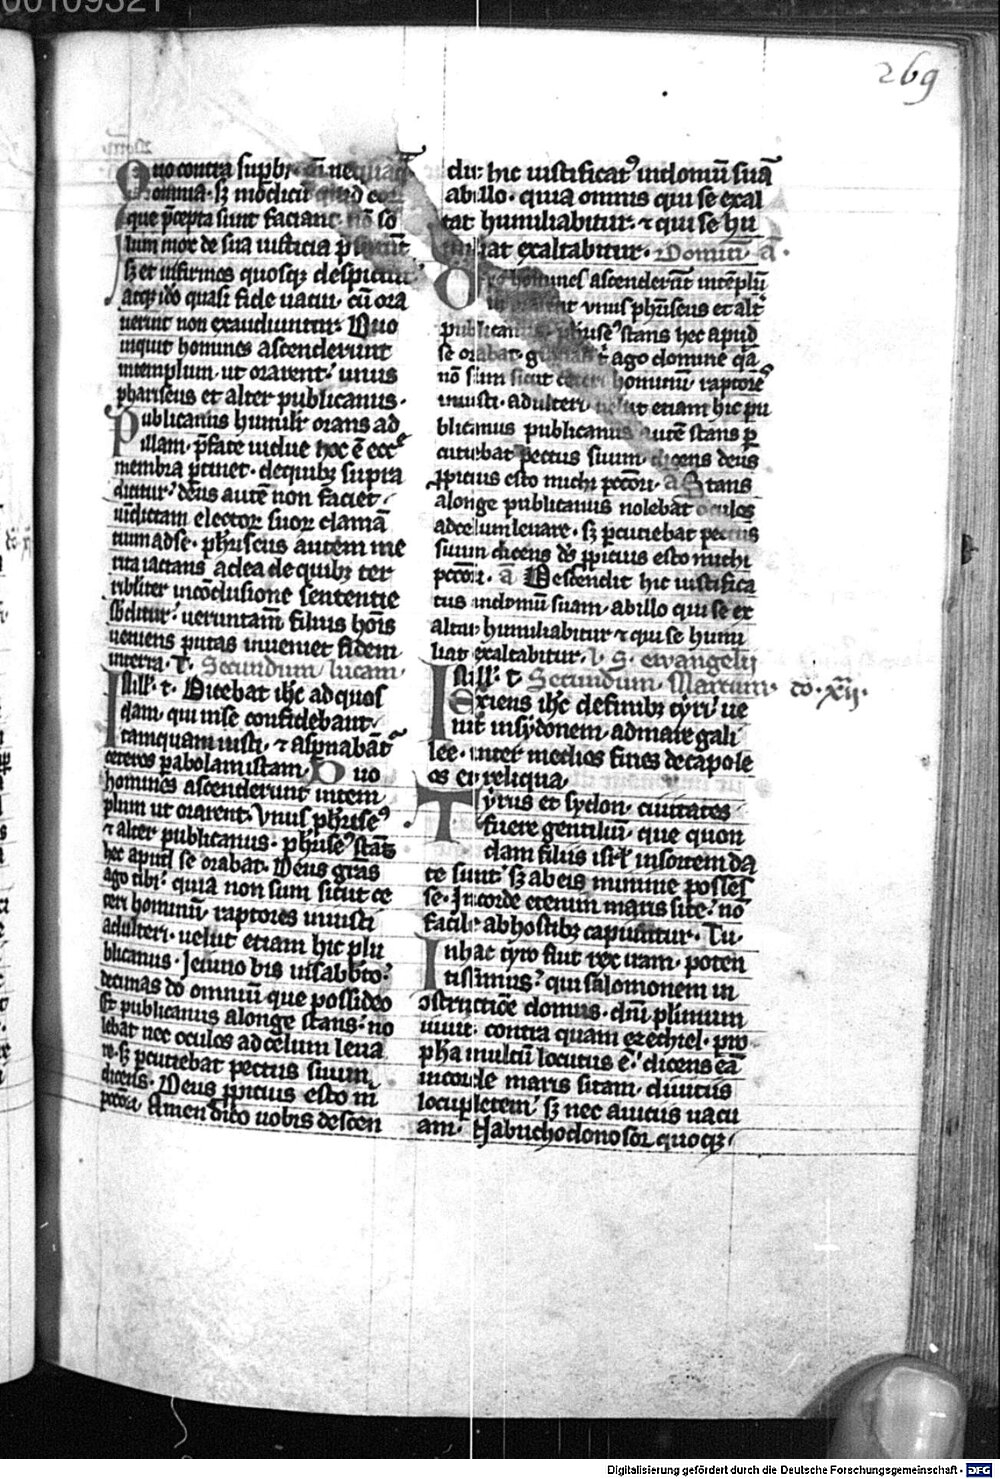 269
Quo contra supbi
omnia· sꝫ modicū quid
que p̄cepta sunt faciant nō so
lum mox de sua iusticia p̄sumūt
sꝫ et infirmos quosqꝫ despiciūt
atqꝫ ido quasi fide uacui· cū ora
uerint non exaudiuntur· Duo
inquit homines ascenderunt
intemplum· ut orarent· unus
phariseus et alter publicanus·
Publicanus humilit̄ orans ad
illam· p̄fate uidue hoc ē ecc̄e
membra ptinet· dequibꝫ supra
dicitur· deus autē non faciet
uīdictam electoꝝ suoꝝ clamā
tium adse· phisеus autem me
rita iactans adea de quibꝫ ter
ribiliter incōclusione sententie
sbditur· ueruntam̄ filius hoīs
ueniens putas inueniet fidem
interra· Secundum lucam·
Dicebat ihc̄ ad quos
dam· qui inse confidebant
tamquam iusti· ⁊ aspnabāt᷑
ceteros pabolam istam· Duo
homines ascenderunt intem
plum ut orarent· Vnus phise᷒
⁊ alter publicanus· phise᷒ stās
hec apud se orabat· Deus gr̄as
ago tibi· quia non sum sicut ce
teri hominū· raptores iniusti
adulteri· uelut etiam hic pu
blicanus· Ieiuno bis ī sabbto·
decimas do omniū que possideo
Et publicanus alonge stans· no
lebat nec oculos ad celum leua
re· sꝫ pcutiebat pectus suum
dicens· Deus ꝓpicius esto m̄
pccōri· Amen dico uobis descen
dit hic iustificat᷒ indomū suā
abillo· quia omnis qui se exal
tat humiliabitur· ⁊ qui se hu
miliat exaltabitur· Domin̄ ā·
Duo homines ascenderūt intēplū
ut orarent vnus phiseus et alt̄
publicanus phise᷒ stans hec apud
se orabat· ago domine q̄a
nō sum sicut ceteri hominū raptore᷒
iniusti· adulteri uelut etiam hic pu
blicanus publicanus autē stans p̄
cutiebat pectus suum· dicens deus
ꝓpicius esto michi pccōri· a Stans
alonge publicanus nolebat oculos
adcelum leuare· sꝫ pcutiebat pectus
suum dicens dꝰ ꝓpicius esto michi
pccōri· ā Descendit hic iustifica
tus indomū suam· abillo qui se ex
altat humiliabitur ⁊ qui se humi
liat exaltabitur· ewangelij
Secundum Marcum· co· xij·
Exiens ihc̄ definibꝫ tyri ue
nit insydonem· admare gali
lee· inter medios fines decapole
os et reliqua·
Tyrus et sydon· ciuitates
fuere gentiliū· que quon
dam filiis isrl̄ insortem da
te sunt· sꝫ abeis minime posses
se· Incorde etenim maris site· nō
facile abhostibꝫ capiuntur· Tu·
Inhac tyro fiut rex iram· poten
tissimus· qui salomonem in
ↄstructiōe domus· dn̄i plimum
iuuit· contra quam ezechiel· pro
pha multū locutus ē· dicens eā
incorde maris sitam· diuiciis
locupletem· sꝫ nec auicus uacu
am· Nabuchodonosor quoqꝫ
Digitalisierung gefördert durch die Deutsche Forschungsgemeinschaft · DFG